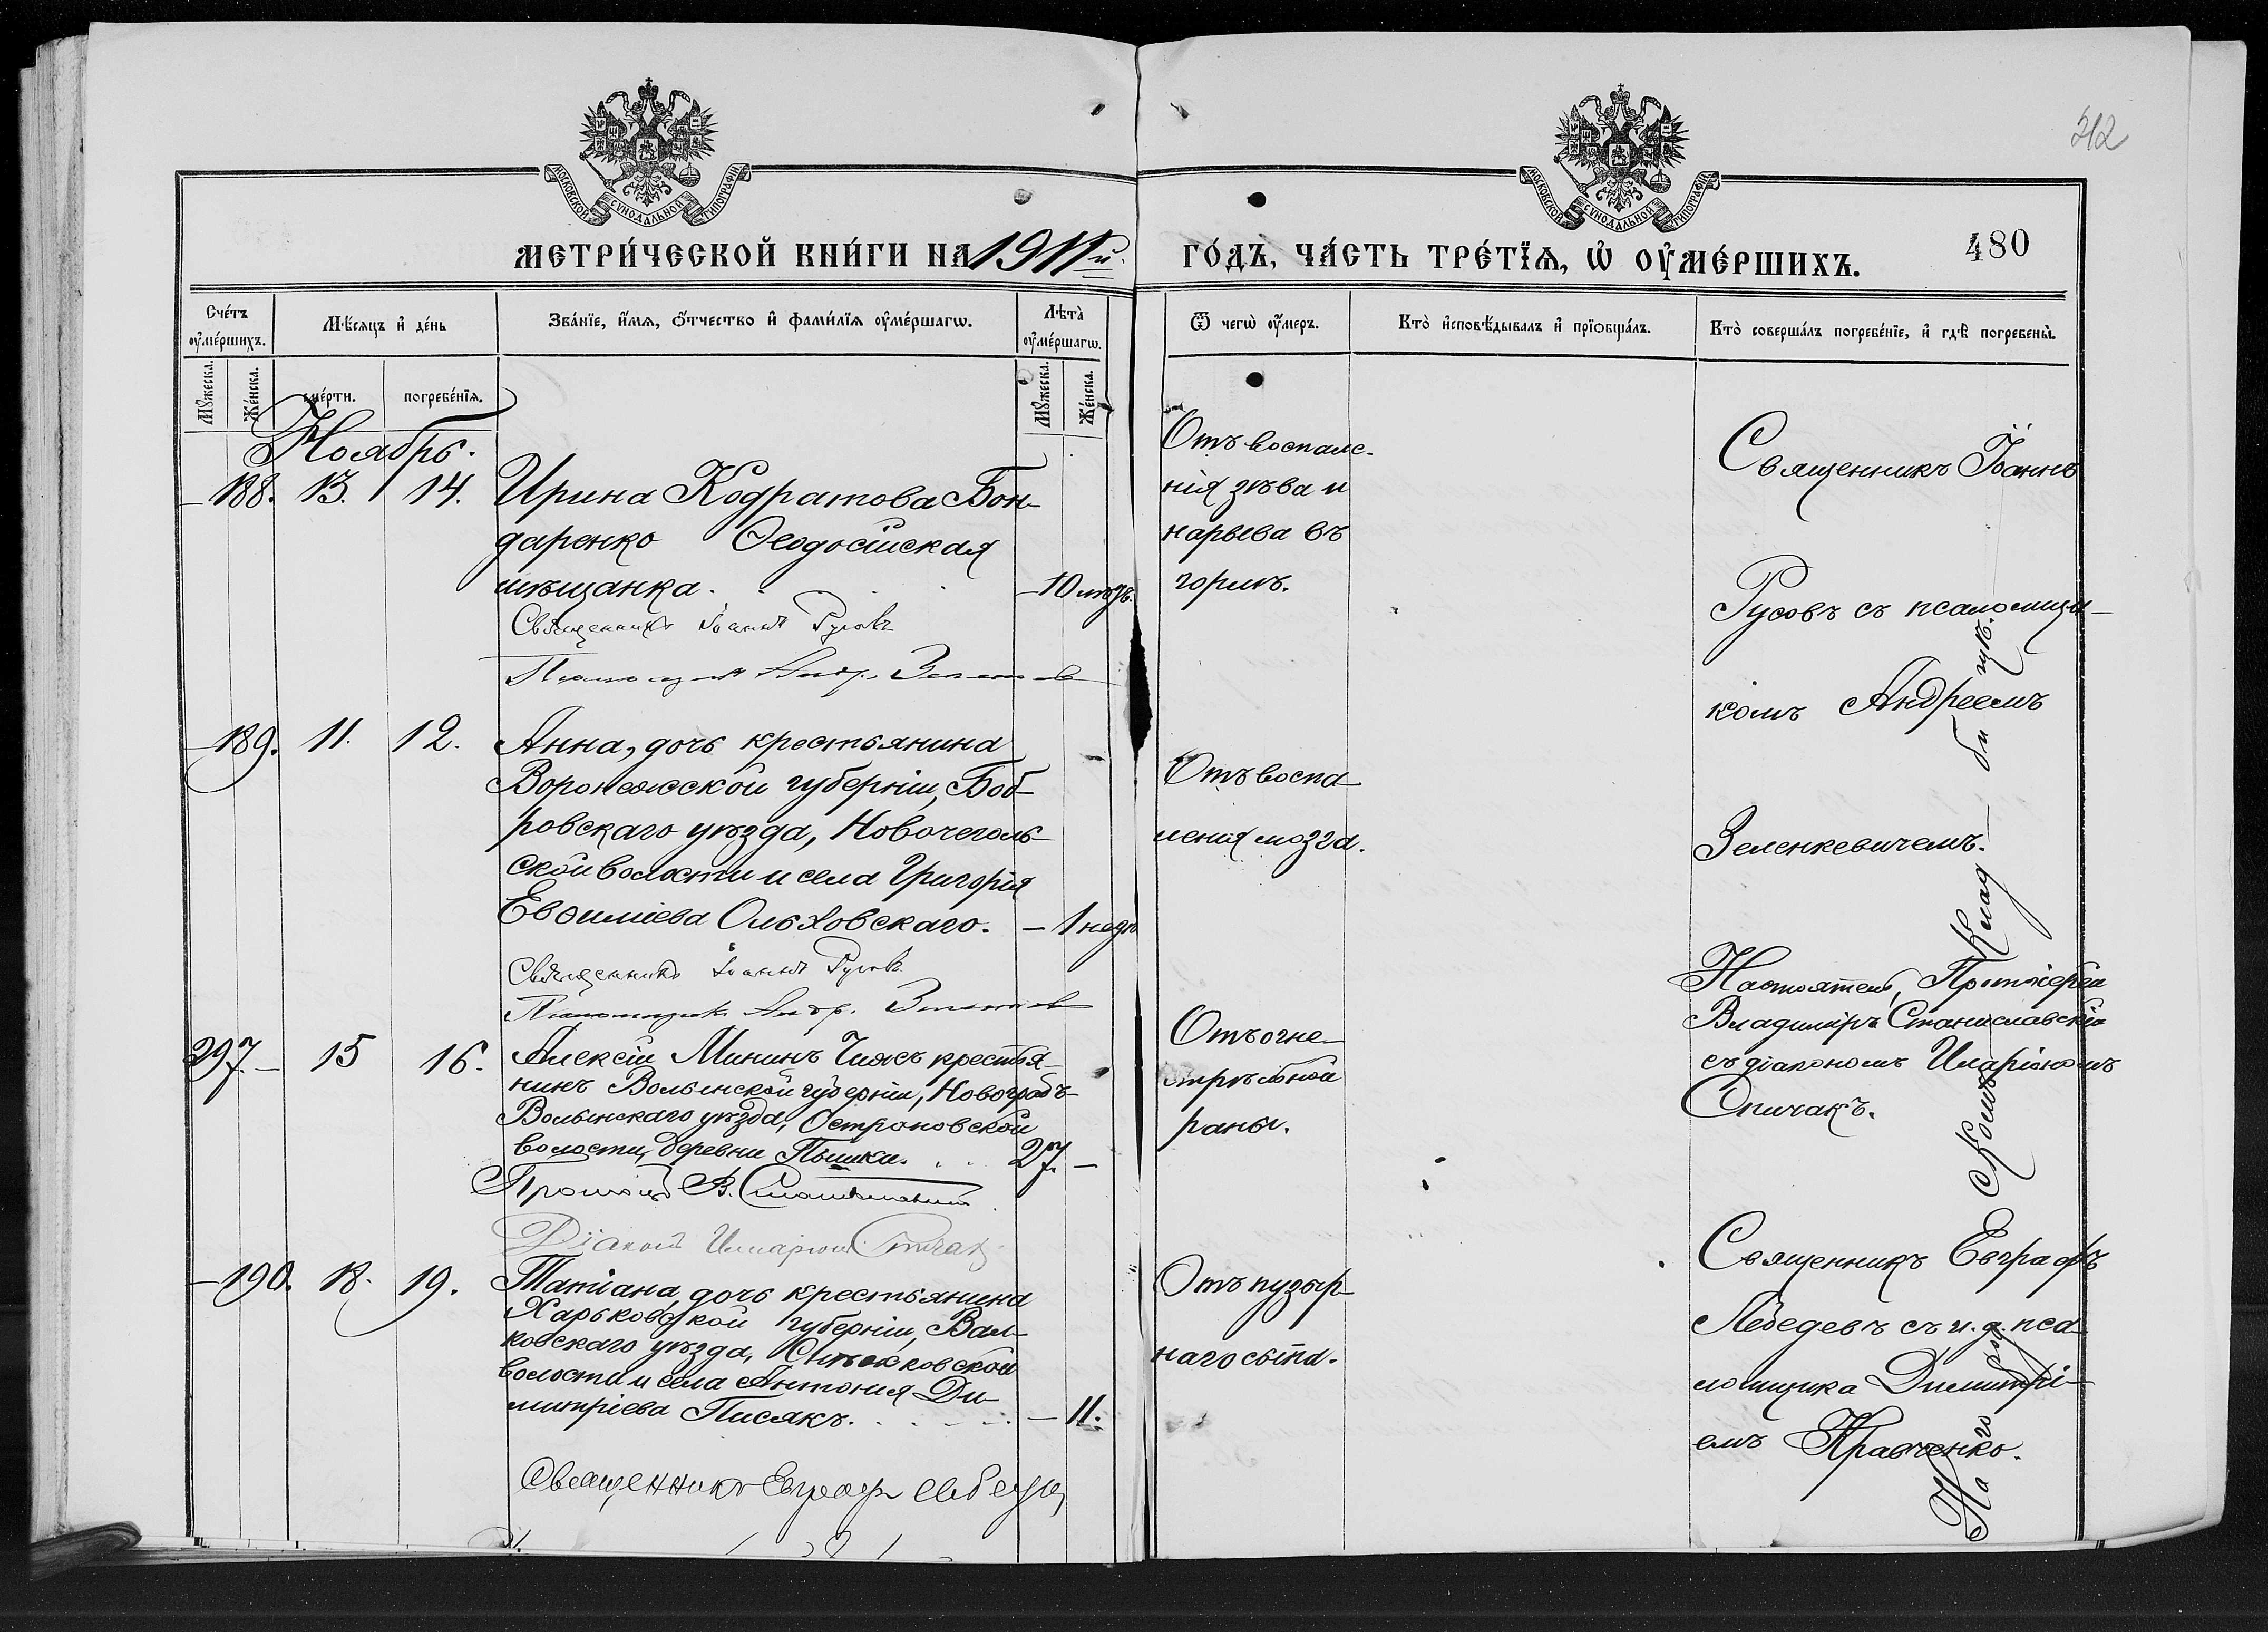 312
МОСКОВСКОЙ СѴНОДАЛЬНОЙ ТИПОГРАФІИ
МОСКОВСКОЙ СѴНОДАЛЬНОЙ ТИПОГРАФІИ
МЕТРИ́ЧЕСКОЙ КНИ́ГИ НА 1911й
ГО́ДЪ, ЧА́СТЬ ТРЕ́ТЇѦ, Ѡ҆ ОУ҆МЕ́РШИХЪ.
480
Сче́тъ оу҆ме́ршихъ.
Мѣ́сяцъ и҆ де́нь
Зва́нїе, и҆́мѧ, ѻ҆́тчество и҆ фами́лїѧ оу҆ме́ршагѡ.
Лѣ́та̀ оу҆ме́ршагѡ.
Ѿ чегѡ̀ оу҆́меръ.
Кто̀ и҆сповѣ́дывалъ и҆ прїѡбща́лъ.
Кто̀ соверша́лъ погребе́нїе, и҆ гдѣ̀ погребены̀.
Мꙋ́жеска.
Же́нска.
сме́рти.
погребе́нїѧ.
Мꙋ́жеска.
Же́нска.
Ноябрь.
– 188. 13. 14. Ирина Кодратова Бон-
даренко Ѳеодосійская
мѣщанка. – 10 мѣс.
Священникъ Іоаннъ Русовъ
Псаломщикъ Андр.
Отъ воспале-
нія зѣва и
нарыва въ
горлѣ.
Священникъ Іоаннъ
Русовъ съ псаломщи-
комъ Андреемъ
Зеленкевичемъ.
– 189. 11. 12. Анна, дочь крестьянина
Воронежской губерніи, Боб-
ровскаго уѣзда, Новочеголь-
ской волости и села Григорія
Евѳиміева Ольховскаго. – 1 нед.
Священникъ Іоаннъ Русовъ
Псаломщикъ Андр.
Отъ воспа-
ленія мозга.
297. – 15 16. Алексій Мининъ Чижъ крестья-
нинъ Волынской губерніи, Новоградъ-
Волынскаго уѣзда,
волости, деревни 27. –
В. Станиславскій
Діаконъ Иларіонъ Спичакъ
Отъ огне-
стрѣльной
раны.
Настоятель, Протоіерей
Владиміръ Станиславскій
съ діакономъ Иларіономъ
Спичакъ.
– 190. 18. 19. Татіана, дочь крестьянина
Харьковской губерніи, Вал-
ковскаго уѣзда,
волости и села Антонія Ди-
митріева Писякъ. – 11.
Священникъ Евграфъ Лебедевъ
Отъ пузыр-
наго сыпа.
Священникъ Евграфъ
Лебедевъ съ и. д. пса
ломщика Димитрі-
емъ Кравченко.
На городскомъ кладбищѣ.